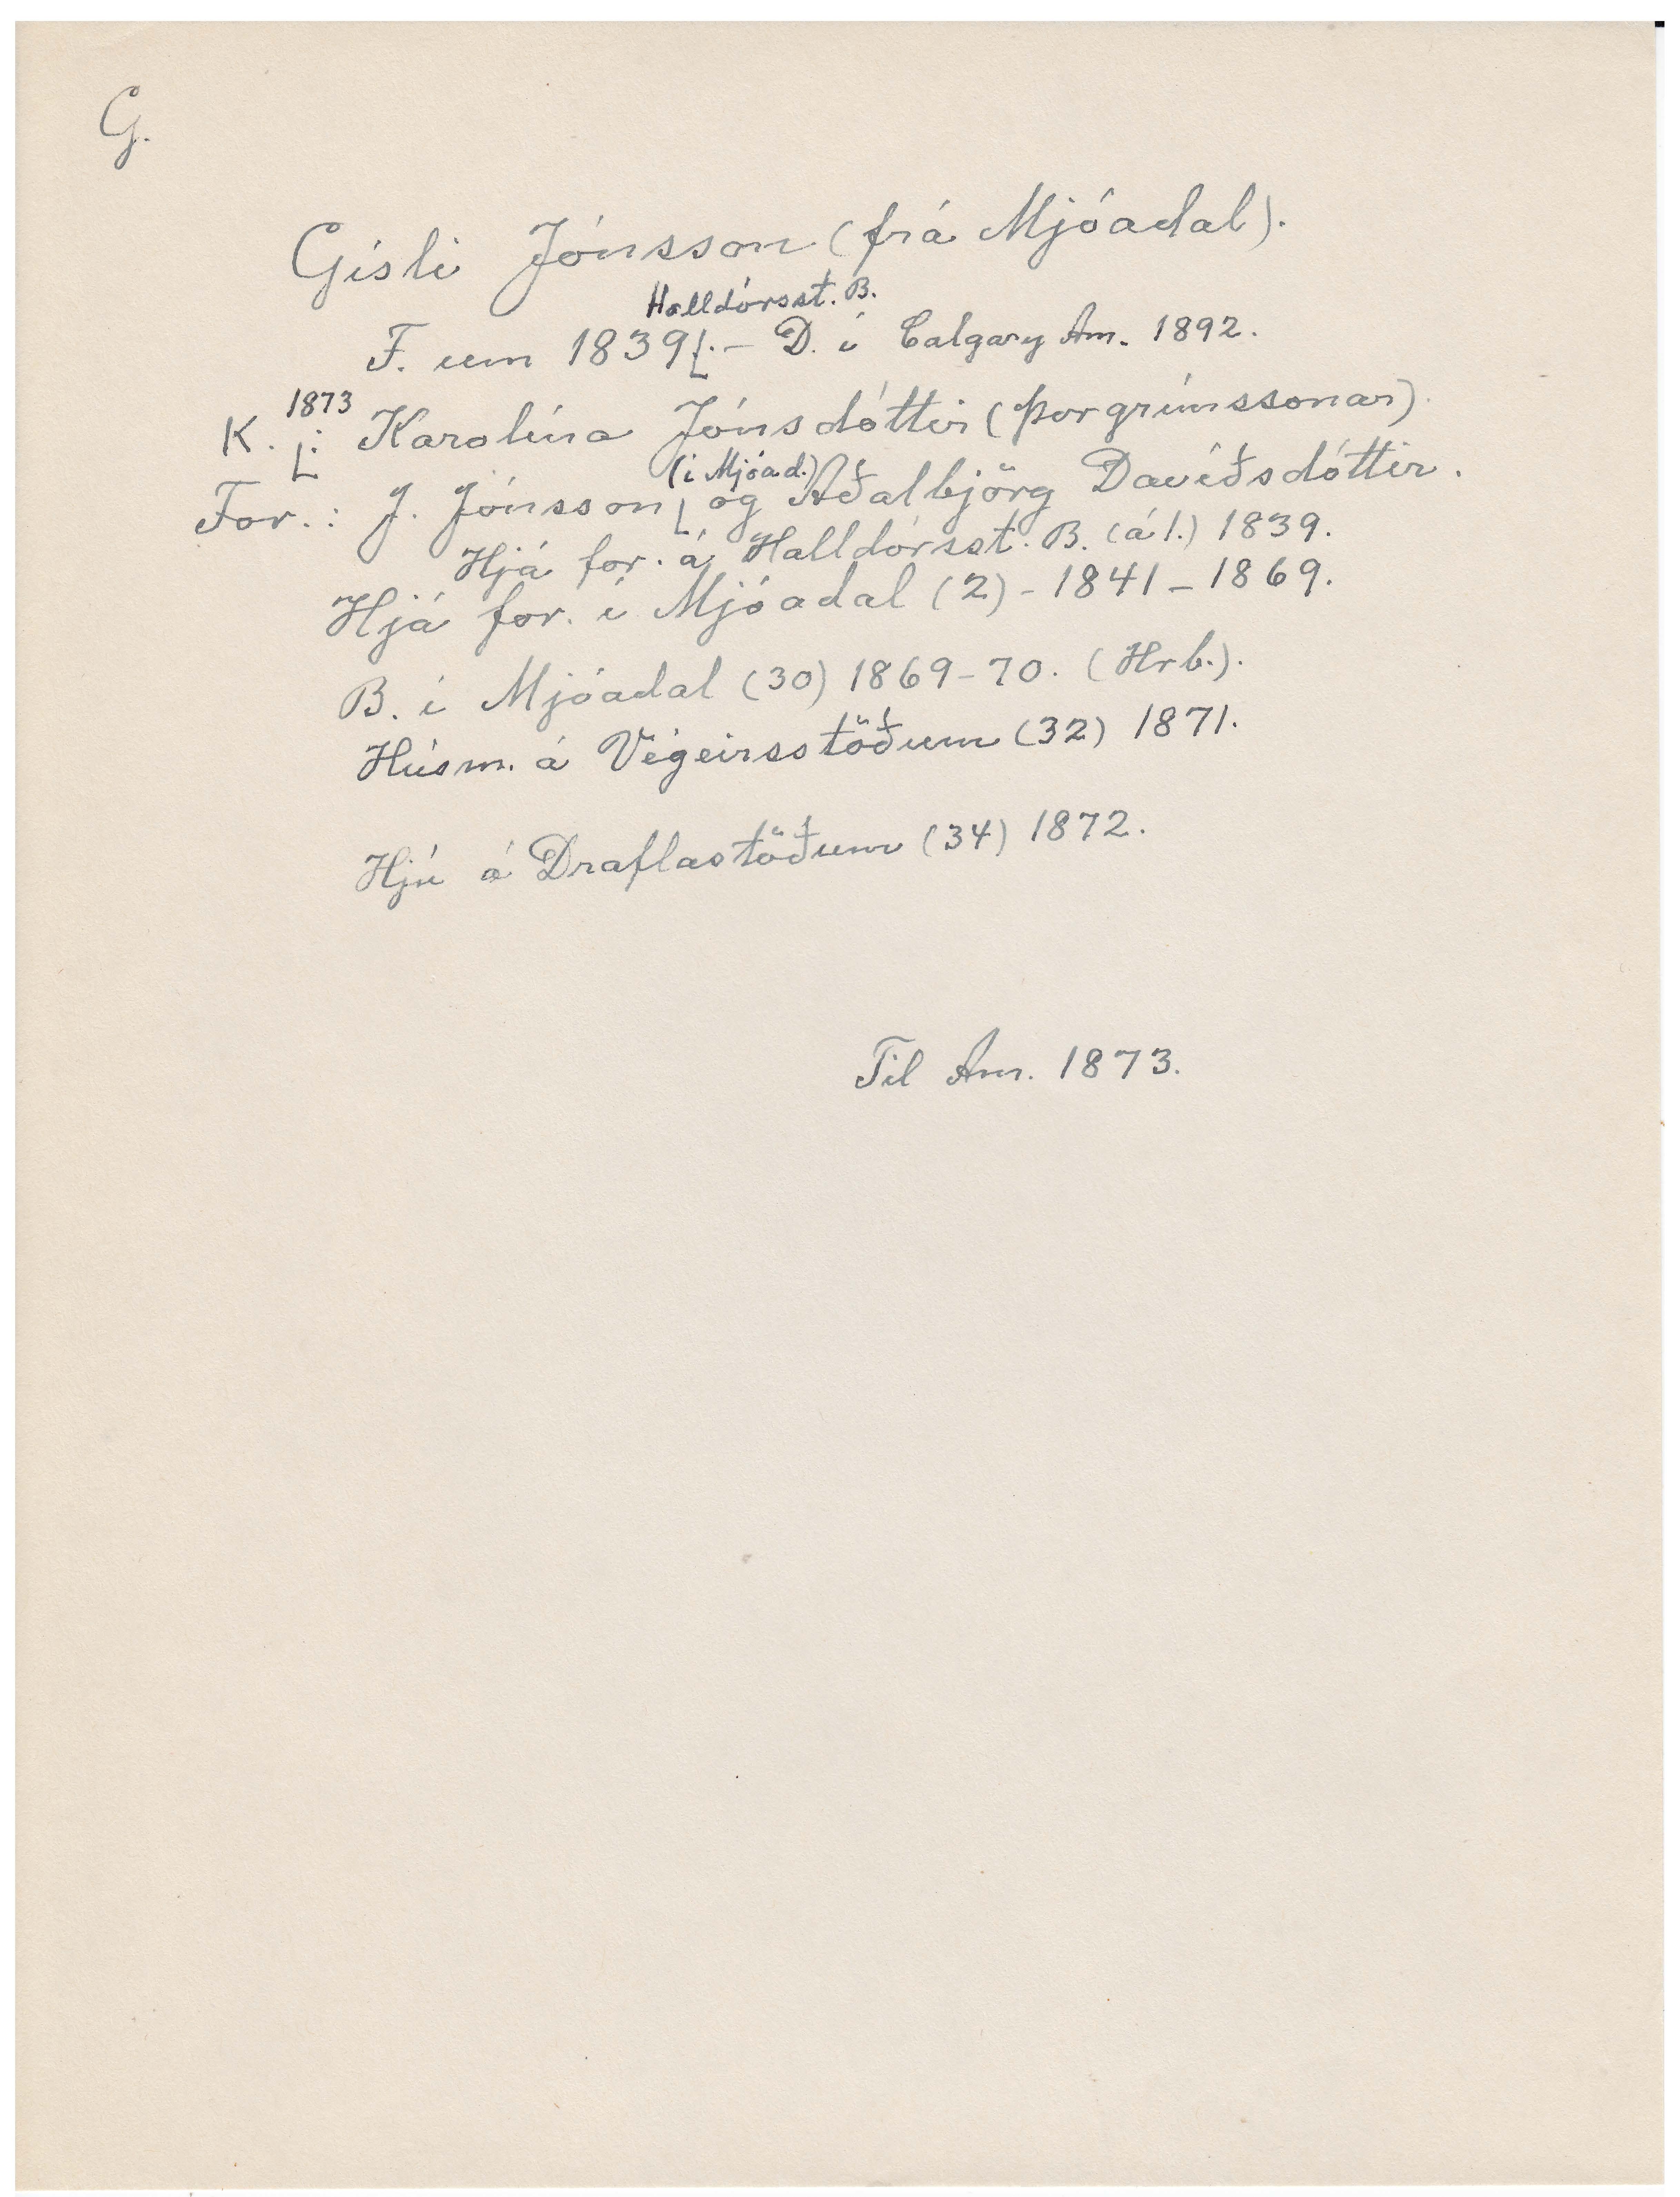 G.
Gísli Jónsson (frá Mjóadal).
Halldórsst. B.
F. um 1839. – D. í Calgary Am. 1892.
1873
K. : Karolína Jónsdóttir (Þorgrímssonar).
(í Mjóad.)
For.: J. Jónsson og Aðalbjörg Davíðsdóttir.
Hjá for. á Halldórsst. B. (á 1.) 1839.
Hjá for. í Mjóadal (2) - 1841 - 1869.
B. í Mjóadal (30) 1869-70. (Hrb.).
Húsm. á Végeirsstöðum (32) 1871.
Hjú á Draflastöðum (34) 1872.
Til Am. 1873.